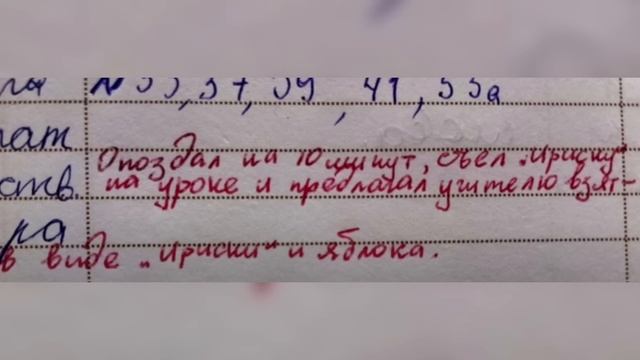 № 35, 37, 39, 41, 53а
Опоздал на 10 минут, съел „Ириску"
ств. на уроке и предлагал учителю взят-
ра
в виде „Ириски" и яблока.